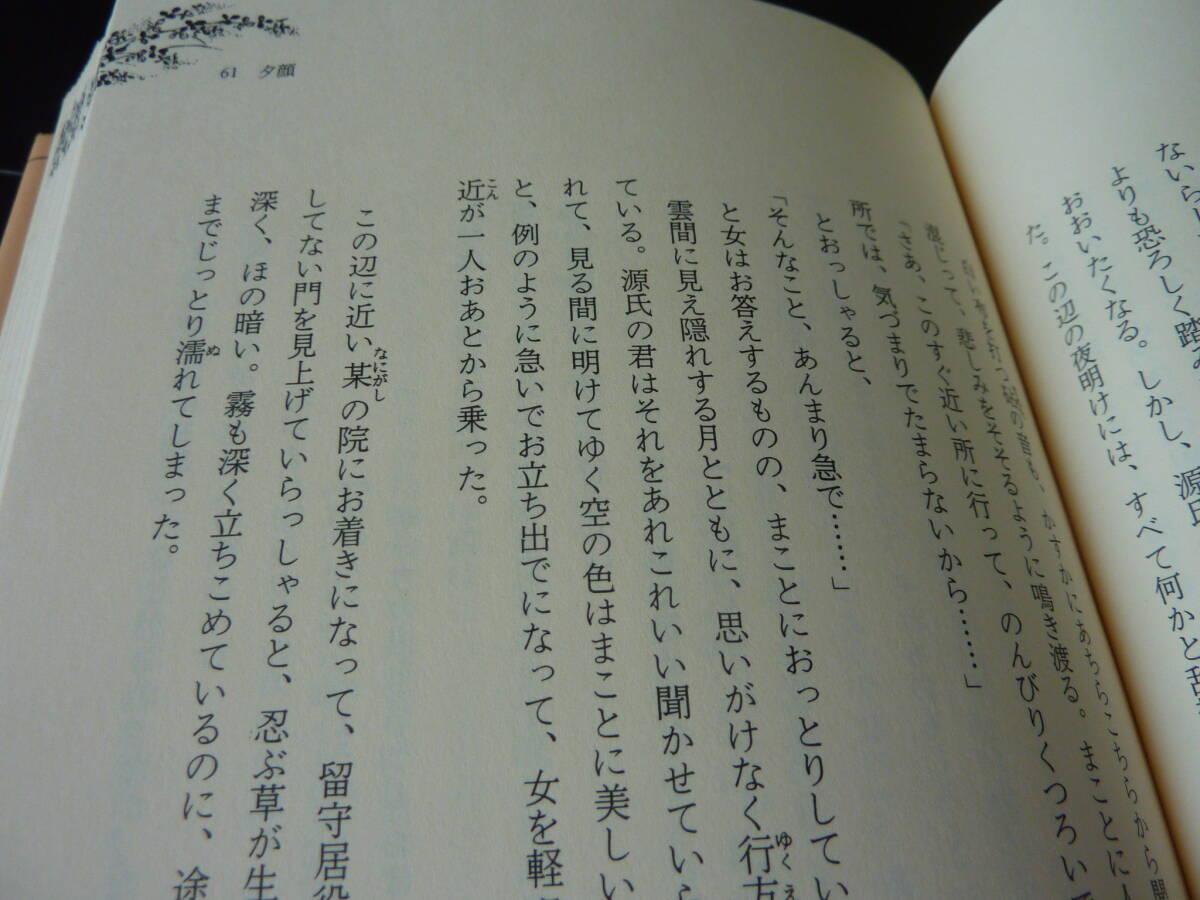 ないられ
よりも恐ろしく踏み
おおいたくなる。しかし、源氏
た。この辺の夜明けには、すべて何かと
61 夕顔
の音も、かすかにあちらこちらから聞
泡じって、悲しみをそそるように鳴き渡る。まことに
「さあ、このすぐ近い所に行って、のんびりくつろいで
所では、気づまりでたまらないから……」
とおっしゃると、
「そんなこと、あんまり急で……」
と女はお答えするものの、まことにおっとりしてい
雲間に見え隠れする月とともに、思いがけなく行方
ている。源氏の君はそれをあれこれいい聞かせてい
れて、見る間に明けてゆく空の色はまことに美しい
と、例のように急いでお立ち出でになって、女を軽
近が一人おあとから乗った。
この辺に近い某の院にお着きになって、留守居役
してない門を見上げていらっしゃると、忍ぶ草が生
深く、ほの暗い。霧も深く立ちこめているのに、途
までじっとり濡れてしまった。